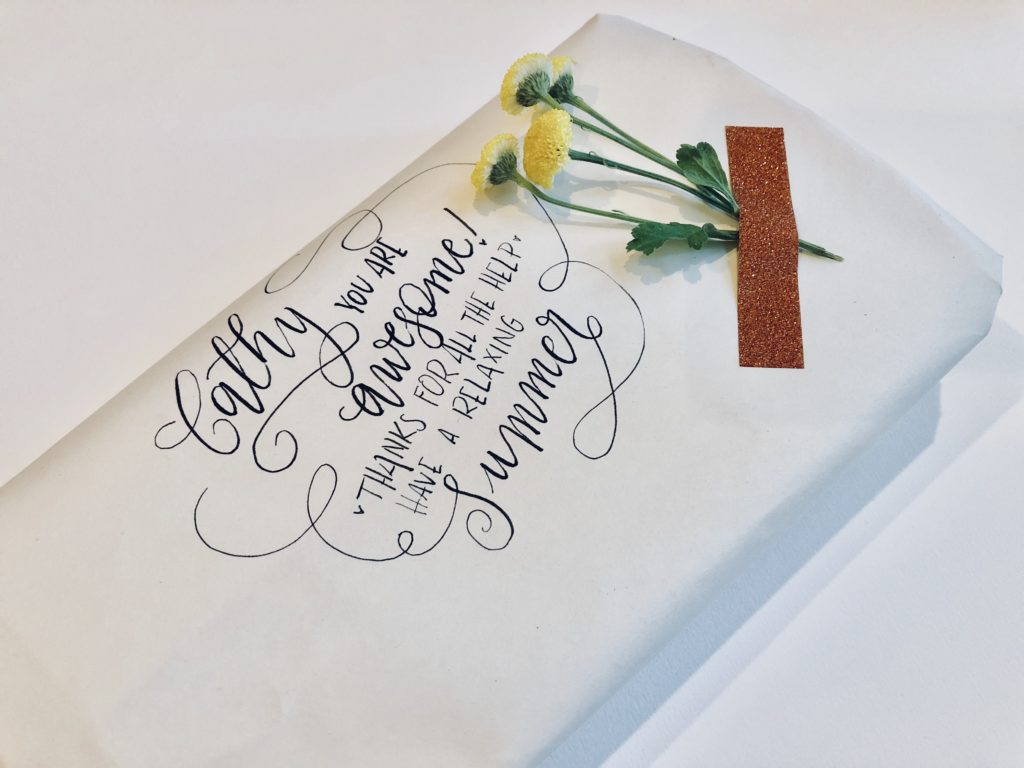 Cathy
YOU ARE
awesome!
THANKS FOR ALL THE HELP
HAVE A RELAXING
Summer